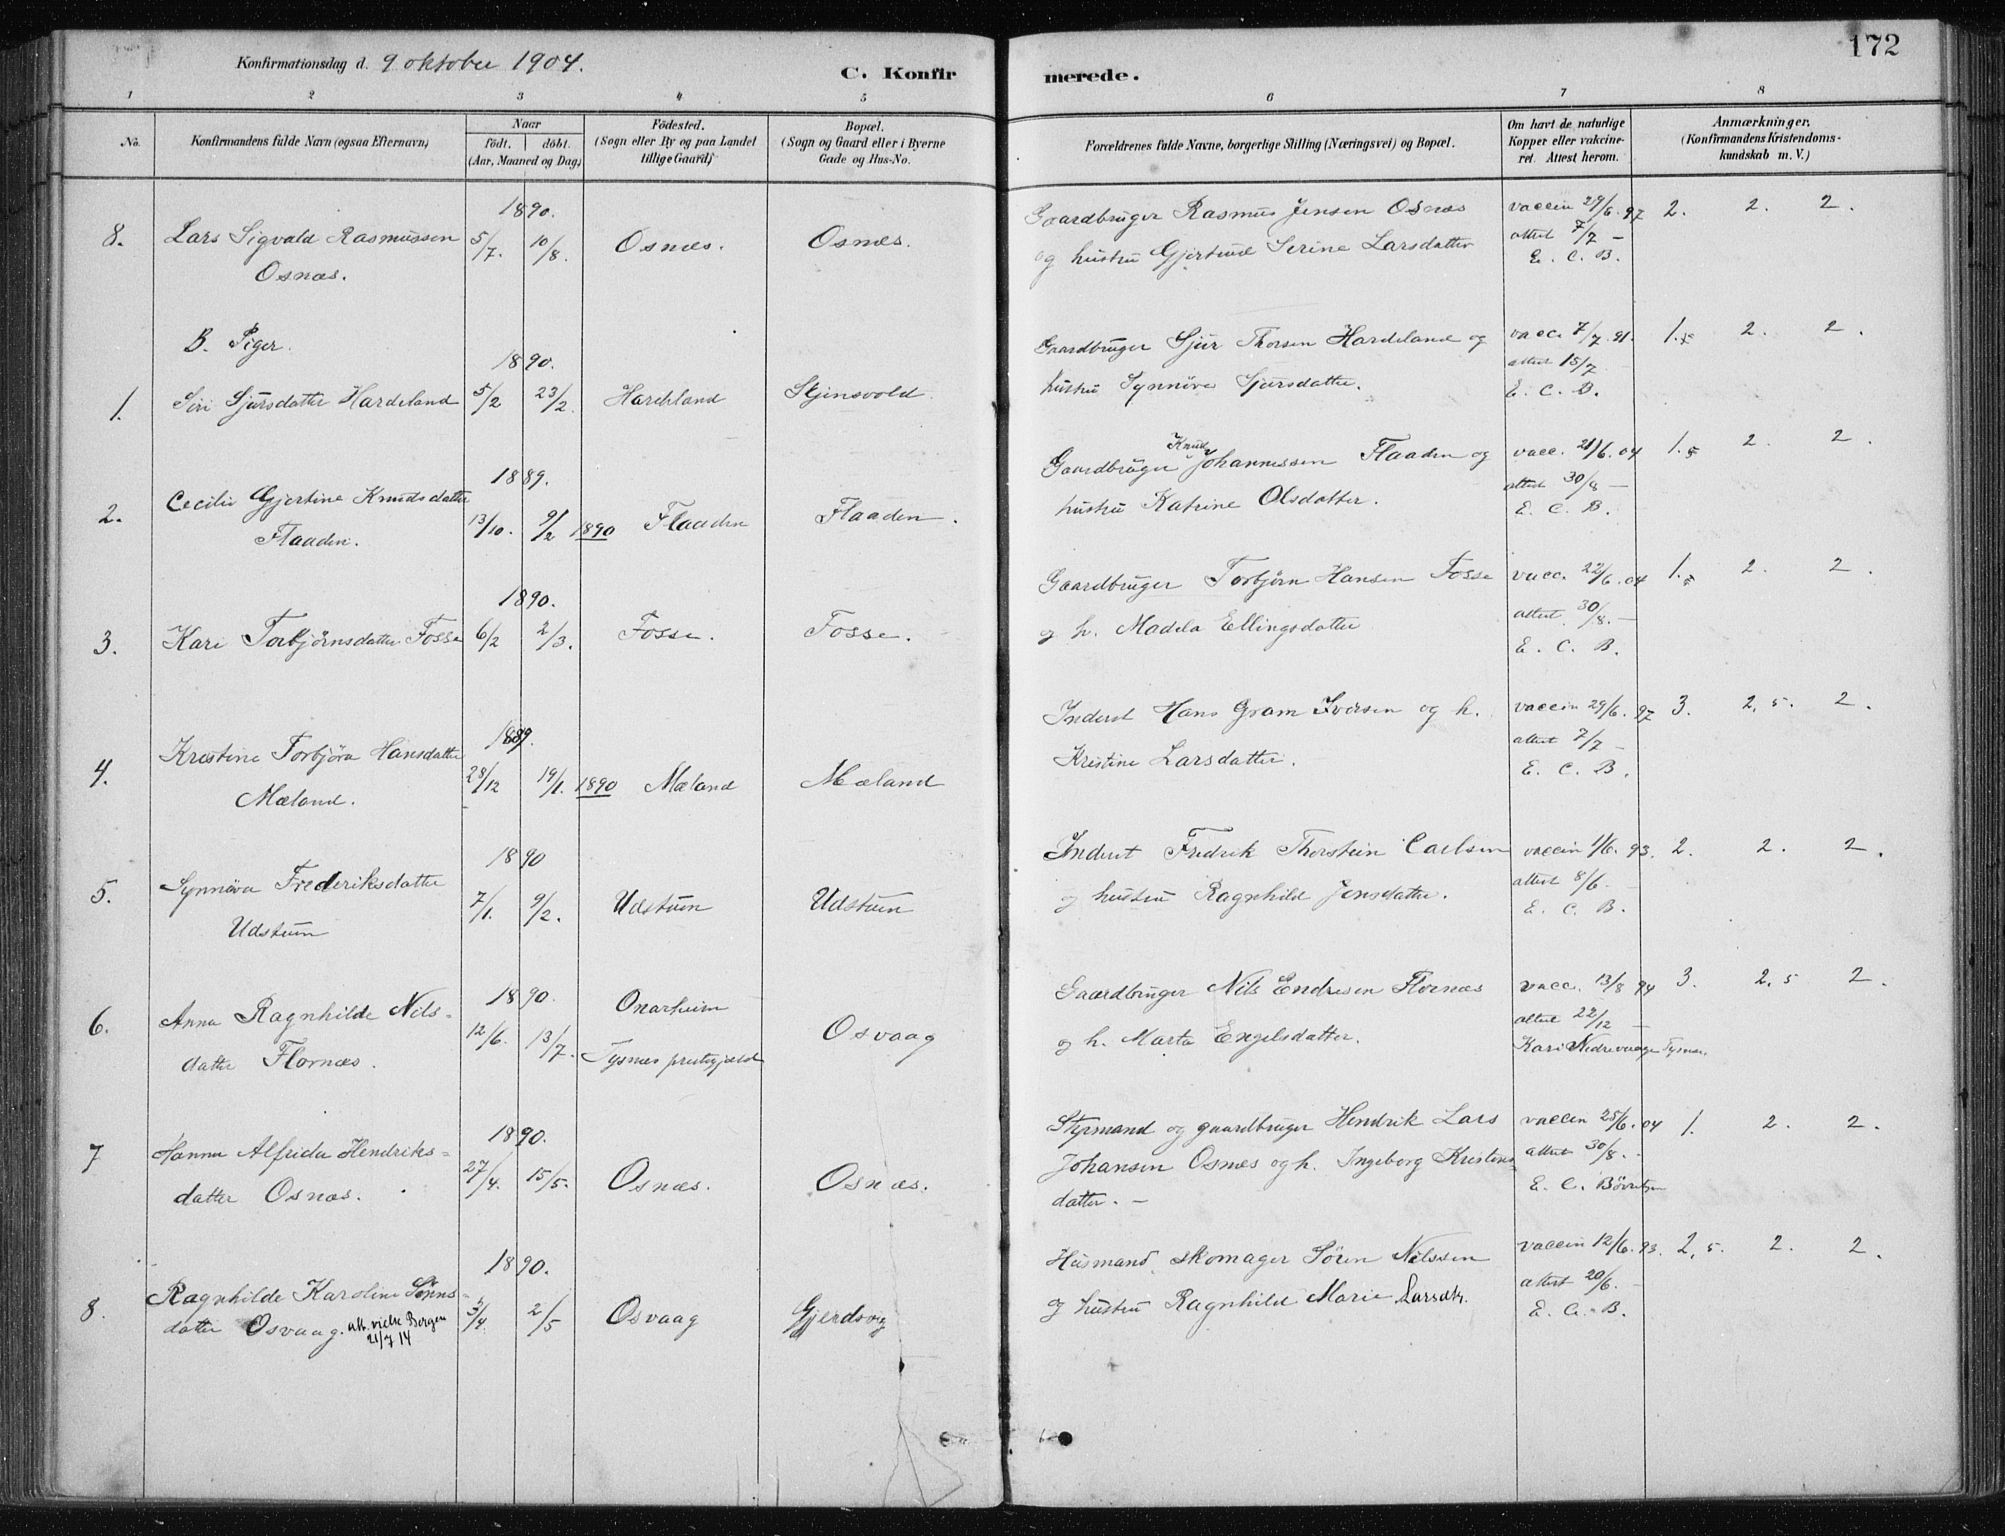 172
Konfirmationsdag d. 9 oktober 1904.
C. Konfirmerede.
1 2 3 4 5 6 7 8
No.
Konfirmandens fulde Navn (ogsaa Efternavn)
Naar
født. døbt.
(Aar, Maaned og Dag)
Fødested.
(Sogn eller By og paa Landet
tillige Gaard)
Bopæl.
(Sogn og Gaard eller i Byerne
Gade og Hus-No.
Forældrenes fulde Navne, borgerlige Stilling (Næringsvei) og Bopæl.
Om havt de naturlige
Kopper eller vakcine-
ret. Attest herom.
Anmærkninger.
(Konfirmandens Kristendoms-
kundskab m. V.)
1890.
8. Lars Sigvald Rasmussen 5/7. 10/8. Osnæs. Osnæs.
Osnæs.
Gaardbruger Rasmus Jensen Osnæs vaccin 29/6. 97 2. 2. 2.
og hustru Gjertrud Serine Larsdatter attest 7/7 –
E. C. B.
B. Piger.
1890.
1. Siri Sjursdatter Hardeland 5/2 23/2. Hardeland Skjensvold
Gaardbruger Sjur Thorsen Hardeland og vacc. 7/7. 91. 1.5 2. 2.
hustru Synnöve Sjursdatter. attest 15/7
E. C. B.
1889.
2. Cecilie Gjertine Knudsdatter 13/10. 9/2 1890 Flaaden Flaaden.
Flaaden.
Knud
Gaardbruger Johannessen Flaaden og vacc. 21/6. 04 1.5 2. 2.
hustru Katrine Olsdatter. attest 30/8 –
E. C. B.
1890.
3. Kari Torbjörnsdatter Fosse 6/2 2/3. Fosse. Fosse.
Gaardbruger Torbjörn Hansen Fosse vacc. 22/6. 04 1.5 2. 2.
og h. Madela Ellingsdatter attest 30/8. –
E. C. B.
1889.
4. Kristine Torbjöra Hansdatter 28/12 19/1. 1890 Mæland Mæland
Mæland.
Inderst Hans Gram Iversen og h. vaccin 29/6. 97 3. 2,5. 2.
Kristine Larsdatter. attest 7/7 –
E. C. B.
1890
5. Synnöva Frederiksdatter 7/1. 9/2. Udstuen Udstuen
Udstuen
Inderst Fredrik Thorstein Carlsen vaccin 1/6. 93. 2. 2. 2.
og hustru Ragnhild Jensdatter. attest 8/6 –
E. C. B.
1890.
6. Anna Ragnhilde Nils- 12/6. 13/7. Onarheim Osvaag
datter Flornæs. Tysnæs prestegjæld
Gaardbruger Nils Endresen Flornæs vacc. 13/8 94 3. 2,5 2.
og h. Marta Engelsdatter. attest 22/12 –
Kari Nedrevaage Tysnæs.
1890.
7 Hanna Alfrida Hendriks- 27/4. 15/5. Osnæs. Osnæs.
datter Osnæs.
Styrmand og gaardbruger Hendrik Lars vaccin 25/6. 04 1. 2. 2.
Johansen Osnæs og h. Ingeborg Kristens attest 30/8. –
datter. – E. C. Bövretsen
1890.
8. Ragnhilde Karoline Sörens- 3/4. 2/5 Osvaag Gjerdsvig
datter Osvaag. att. vielse Bergen
21/7 14
Husmand skomager Sören Nilssen vaccin 12/6. 93. 2,5. 2. 2.
og hustru Ragnhild Marie Larsdtr. attest 20/6. –
E. C. B.